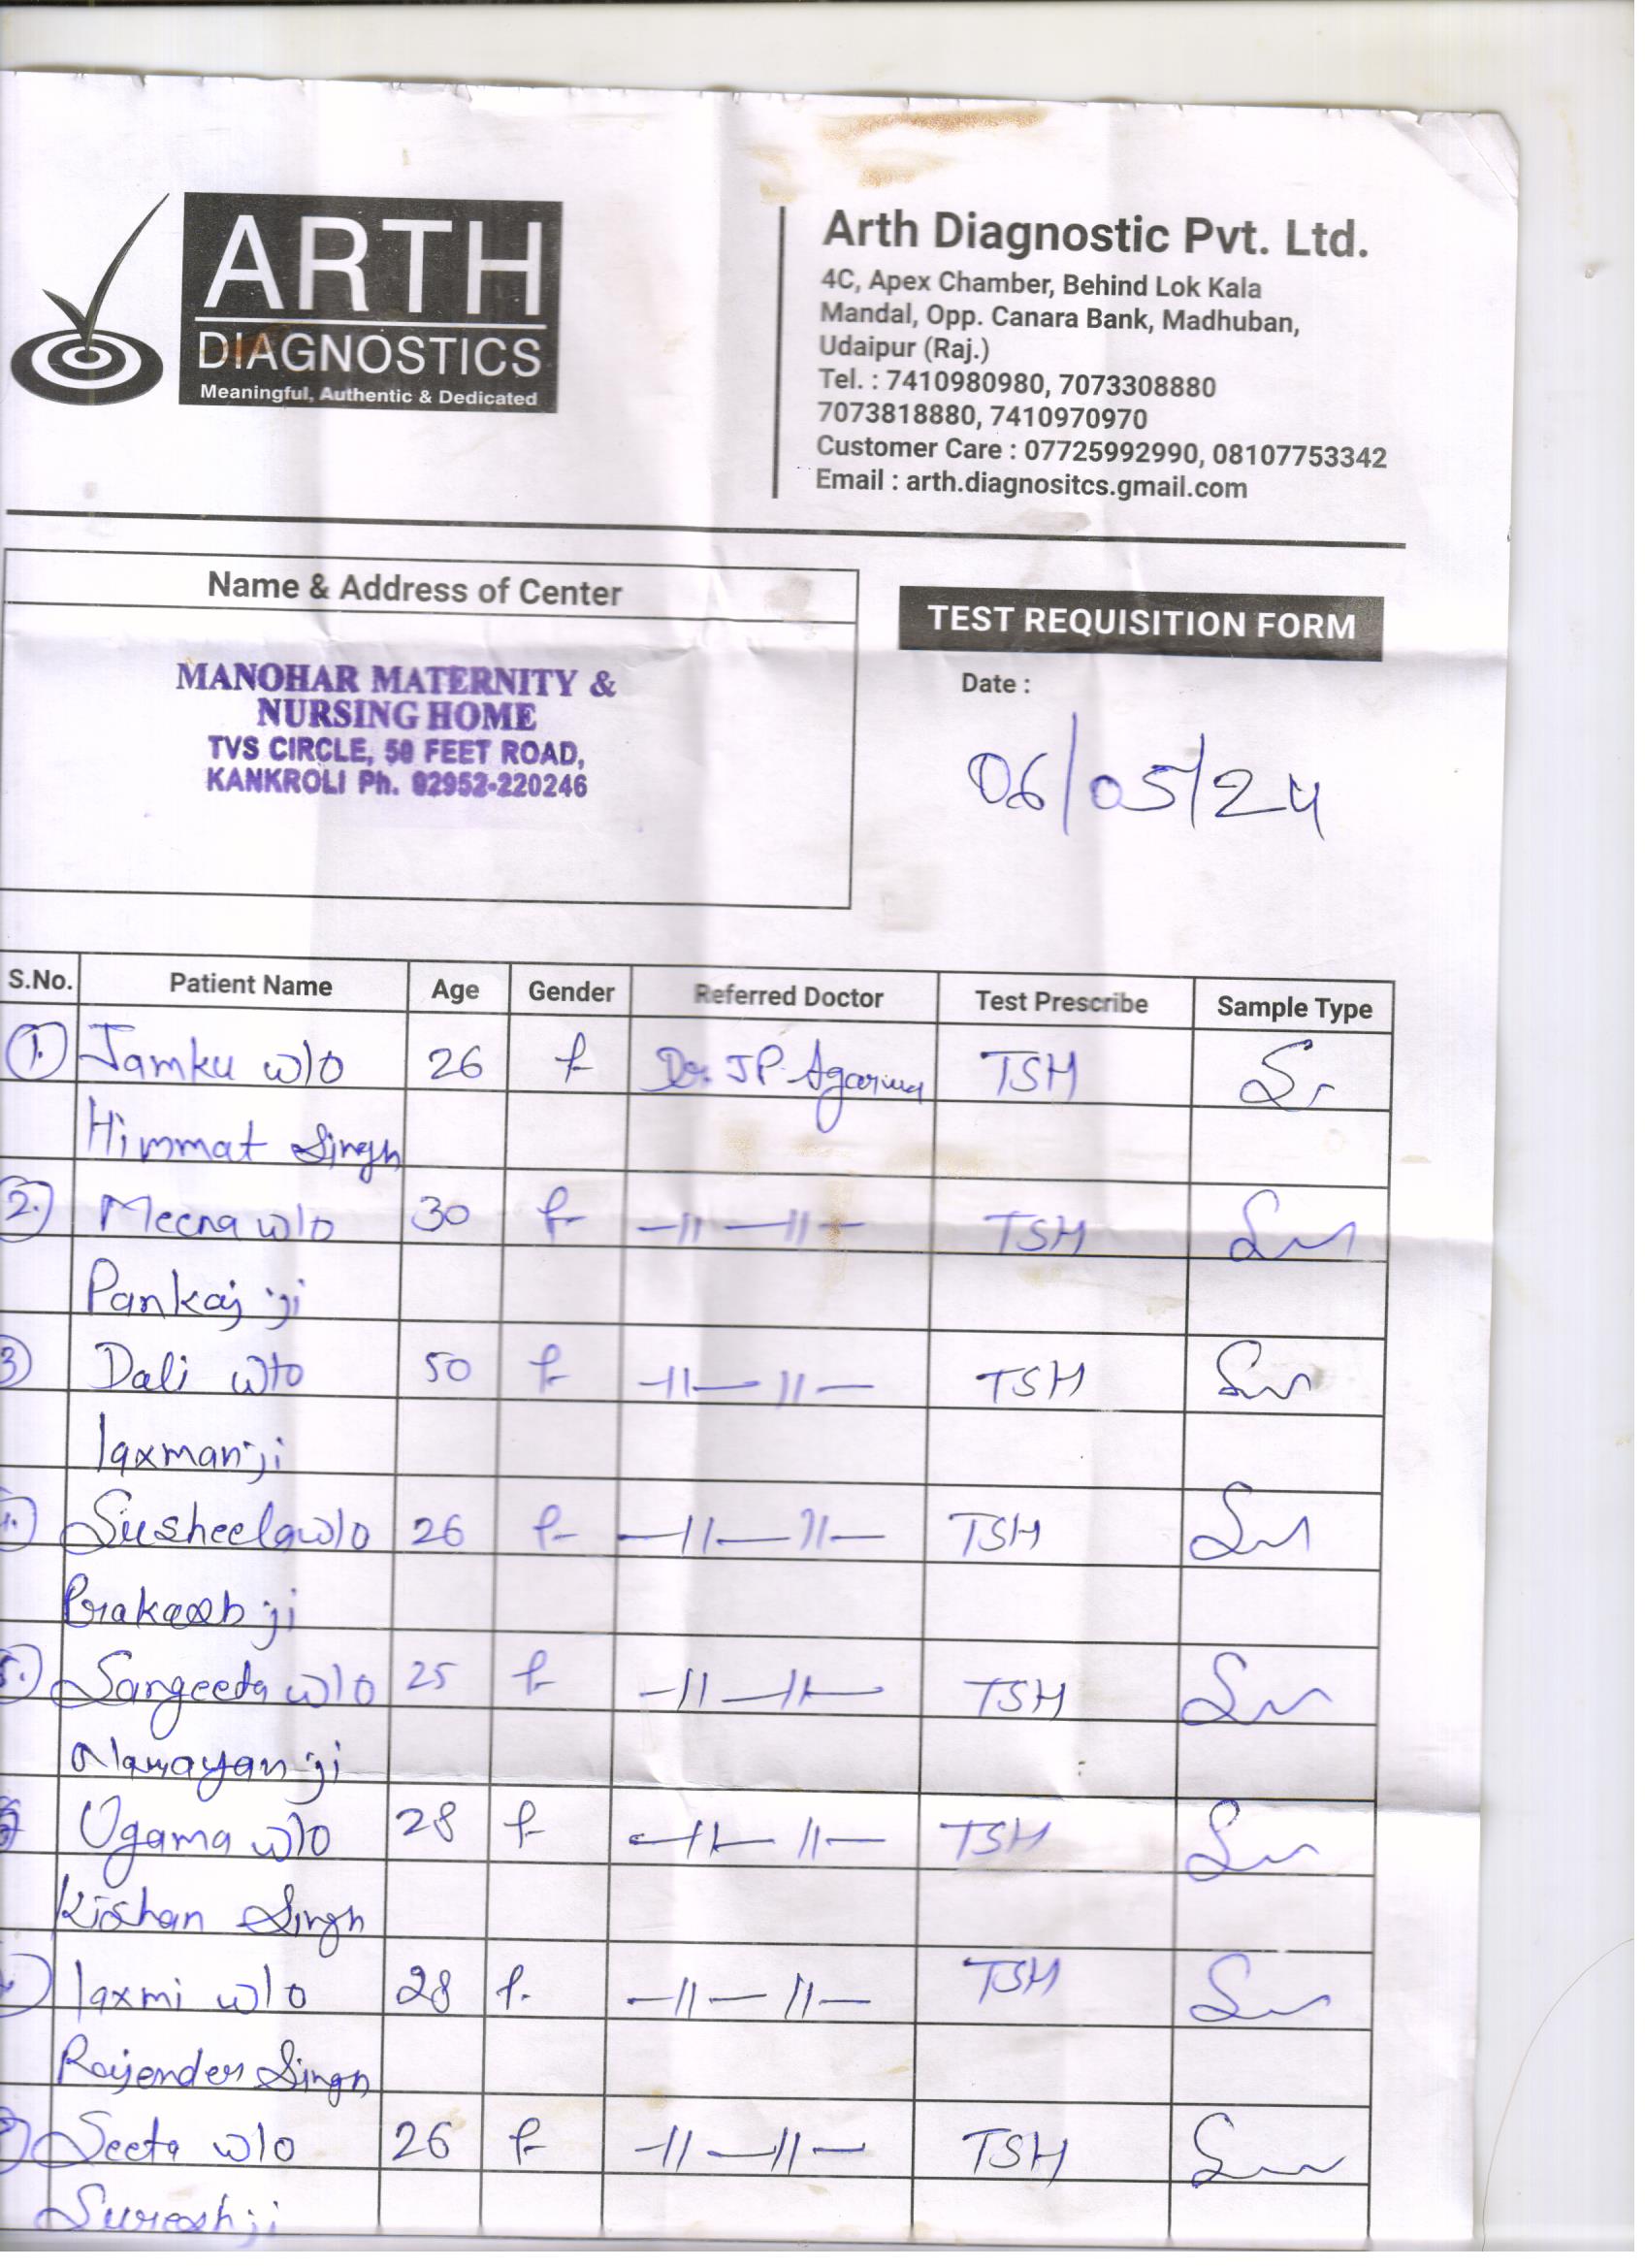 ARTH
DIAGNOSTICS
Meaningful, Authentic & Dedicated
Arth Diagnostic Pvt. Ltd.
4C, Apex Chamber, Behind Lok Kala
Mandal, Opp. Canara Bank, Madhuban,
Udaipur (Raj.)
Tel. : 7410980980, 7073308880
7073818880, 7410970970
Customer Care : 07725992990, 08107753342
Email : arth.diagnositcs.gmail.com
Name & Address of Center
MANOHAR MATERNITY &
NURSING HOME
TVS CIRCLE, 50 FEET ROAD,
KANKROLI Ph. 02952-220246
TEST REQUISITION FORM
Date :
06/05/24
S.No. Patient Name Age Gender Referred Doctor Test Prescribe Sample Type
1. Jamku w/o 26 f Dr. JP. Agarwal TSH
Himmat Singh
2. Meena w/o 30 f -||-||- TSH
Pankaj ji
3 Dali w/o 50 f -||-||- TSH
laxman ji
Susheela w/o 26 f -||-||- TSH
Prakash ji
5. Sangeeta w/o 25 f -||-||- TSH
Narayan ji
Ugama w/o 28 f -||-||- TSH
Kishan Singh
laxmi w/o 28 f. -||-||- TSH
Rajender Singh
Seeta w/o 26 f -||-||- TSH
Suresh ji